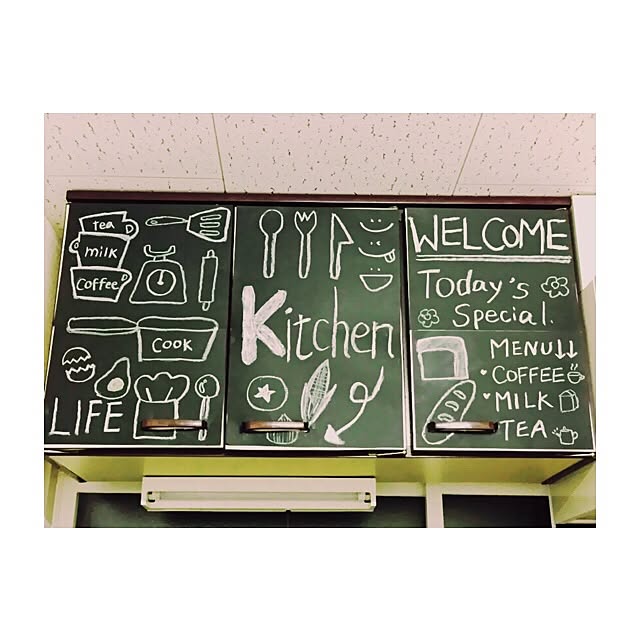 tea
milk
Coffee
COOK
LIFE
Kitchen
WELCOME
Today's
Special.
MENU↓↓
♥COFFEE
♥MILK
TEA